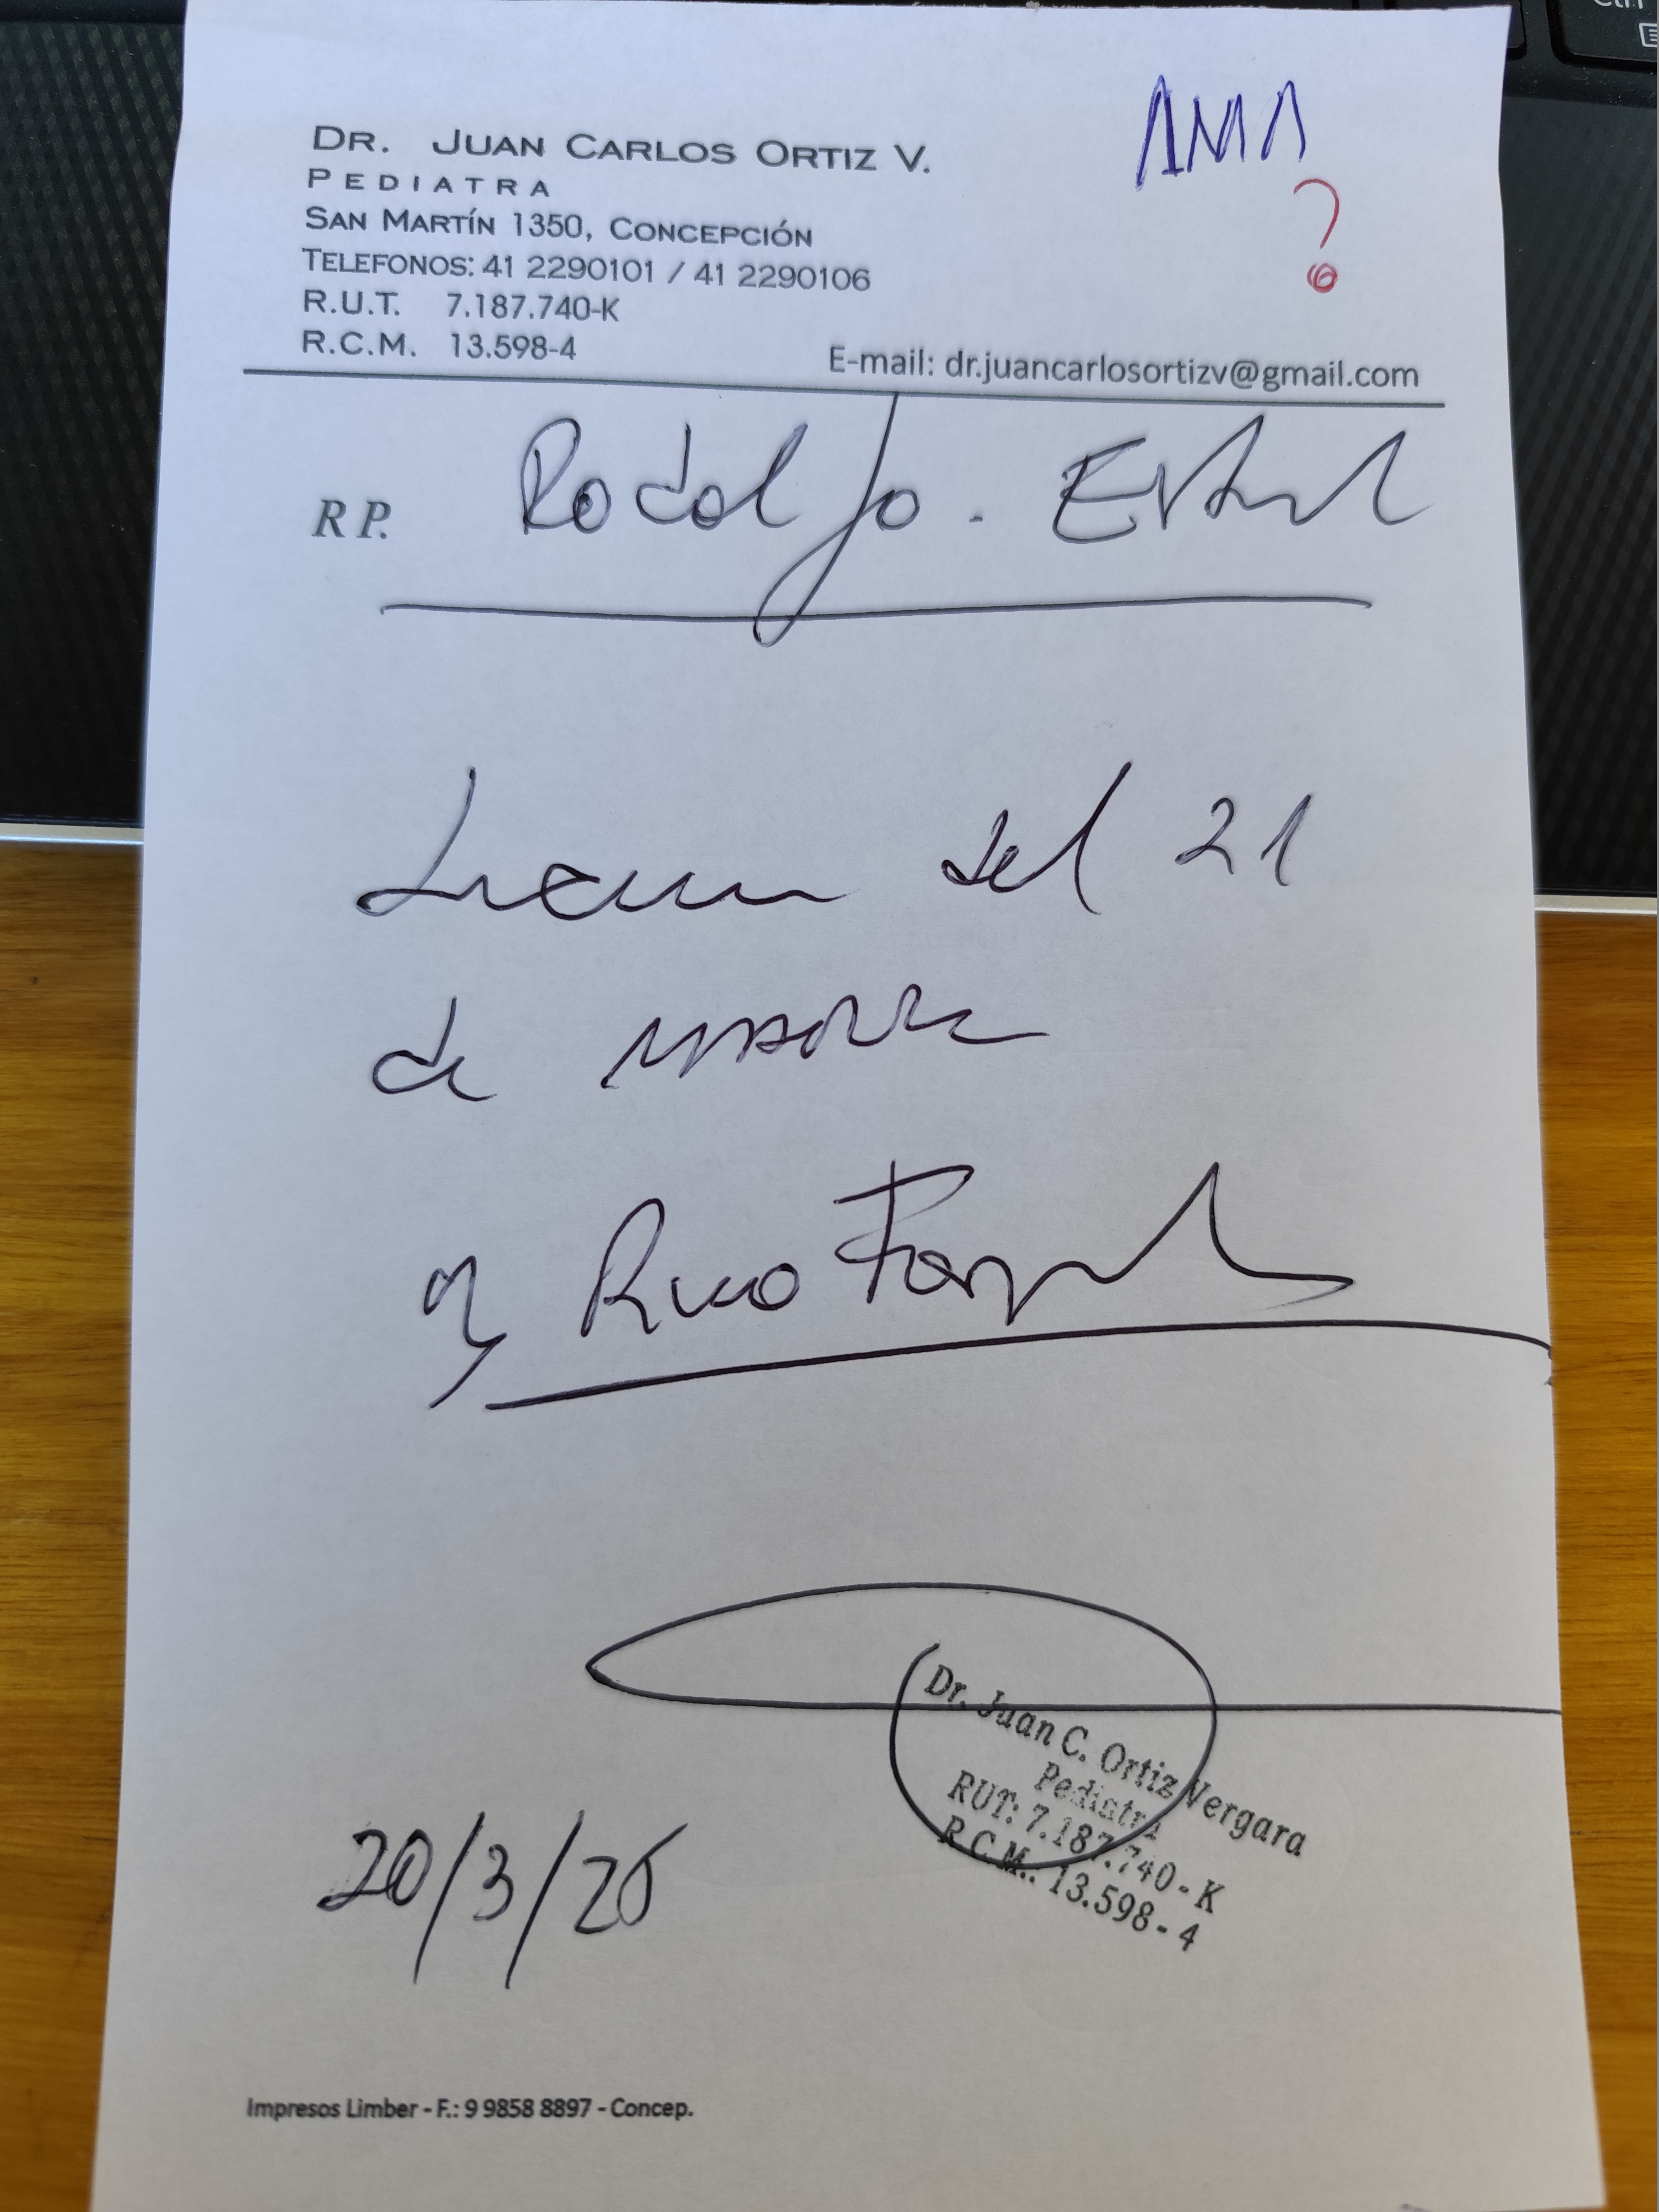 ANA
?
DR. JUAN CARLOS ORTIZ V.
PEDIATRA
SAN MARTÍN 1350, CONCEPCIÓN
TELEFONOS: 41 2290101 / 41 2290106
R.U.T. 7.187.740-K
R.C.M. 13.598-4
E-mail: dr.juancarlosortizv@gmail.com
RP. Rodolfo.
del 21
de
20/3/26
Dr. Juan C. Ortiz Vergara
Pediatra
RUT: 7.187.740-K
R.C.M.: 13.598-4
Impresos Limber - F.: 9 9858 8897 - Concep.
Ctrl